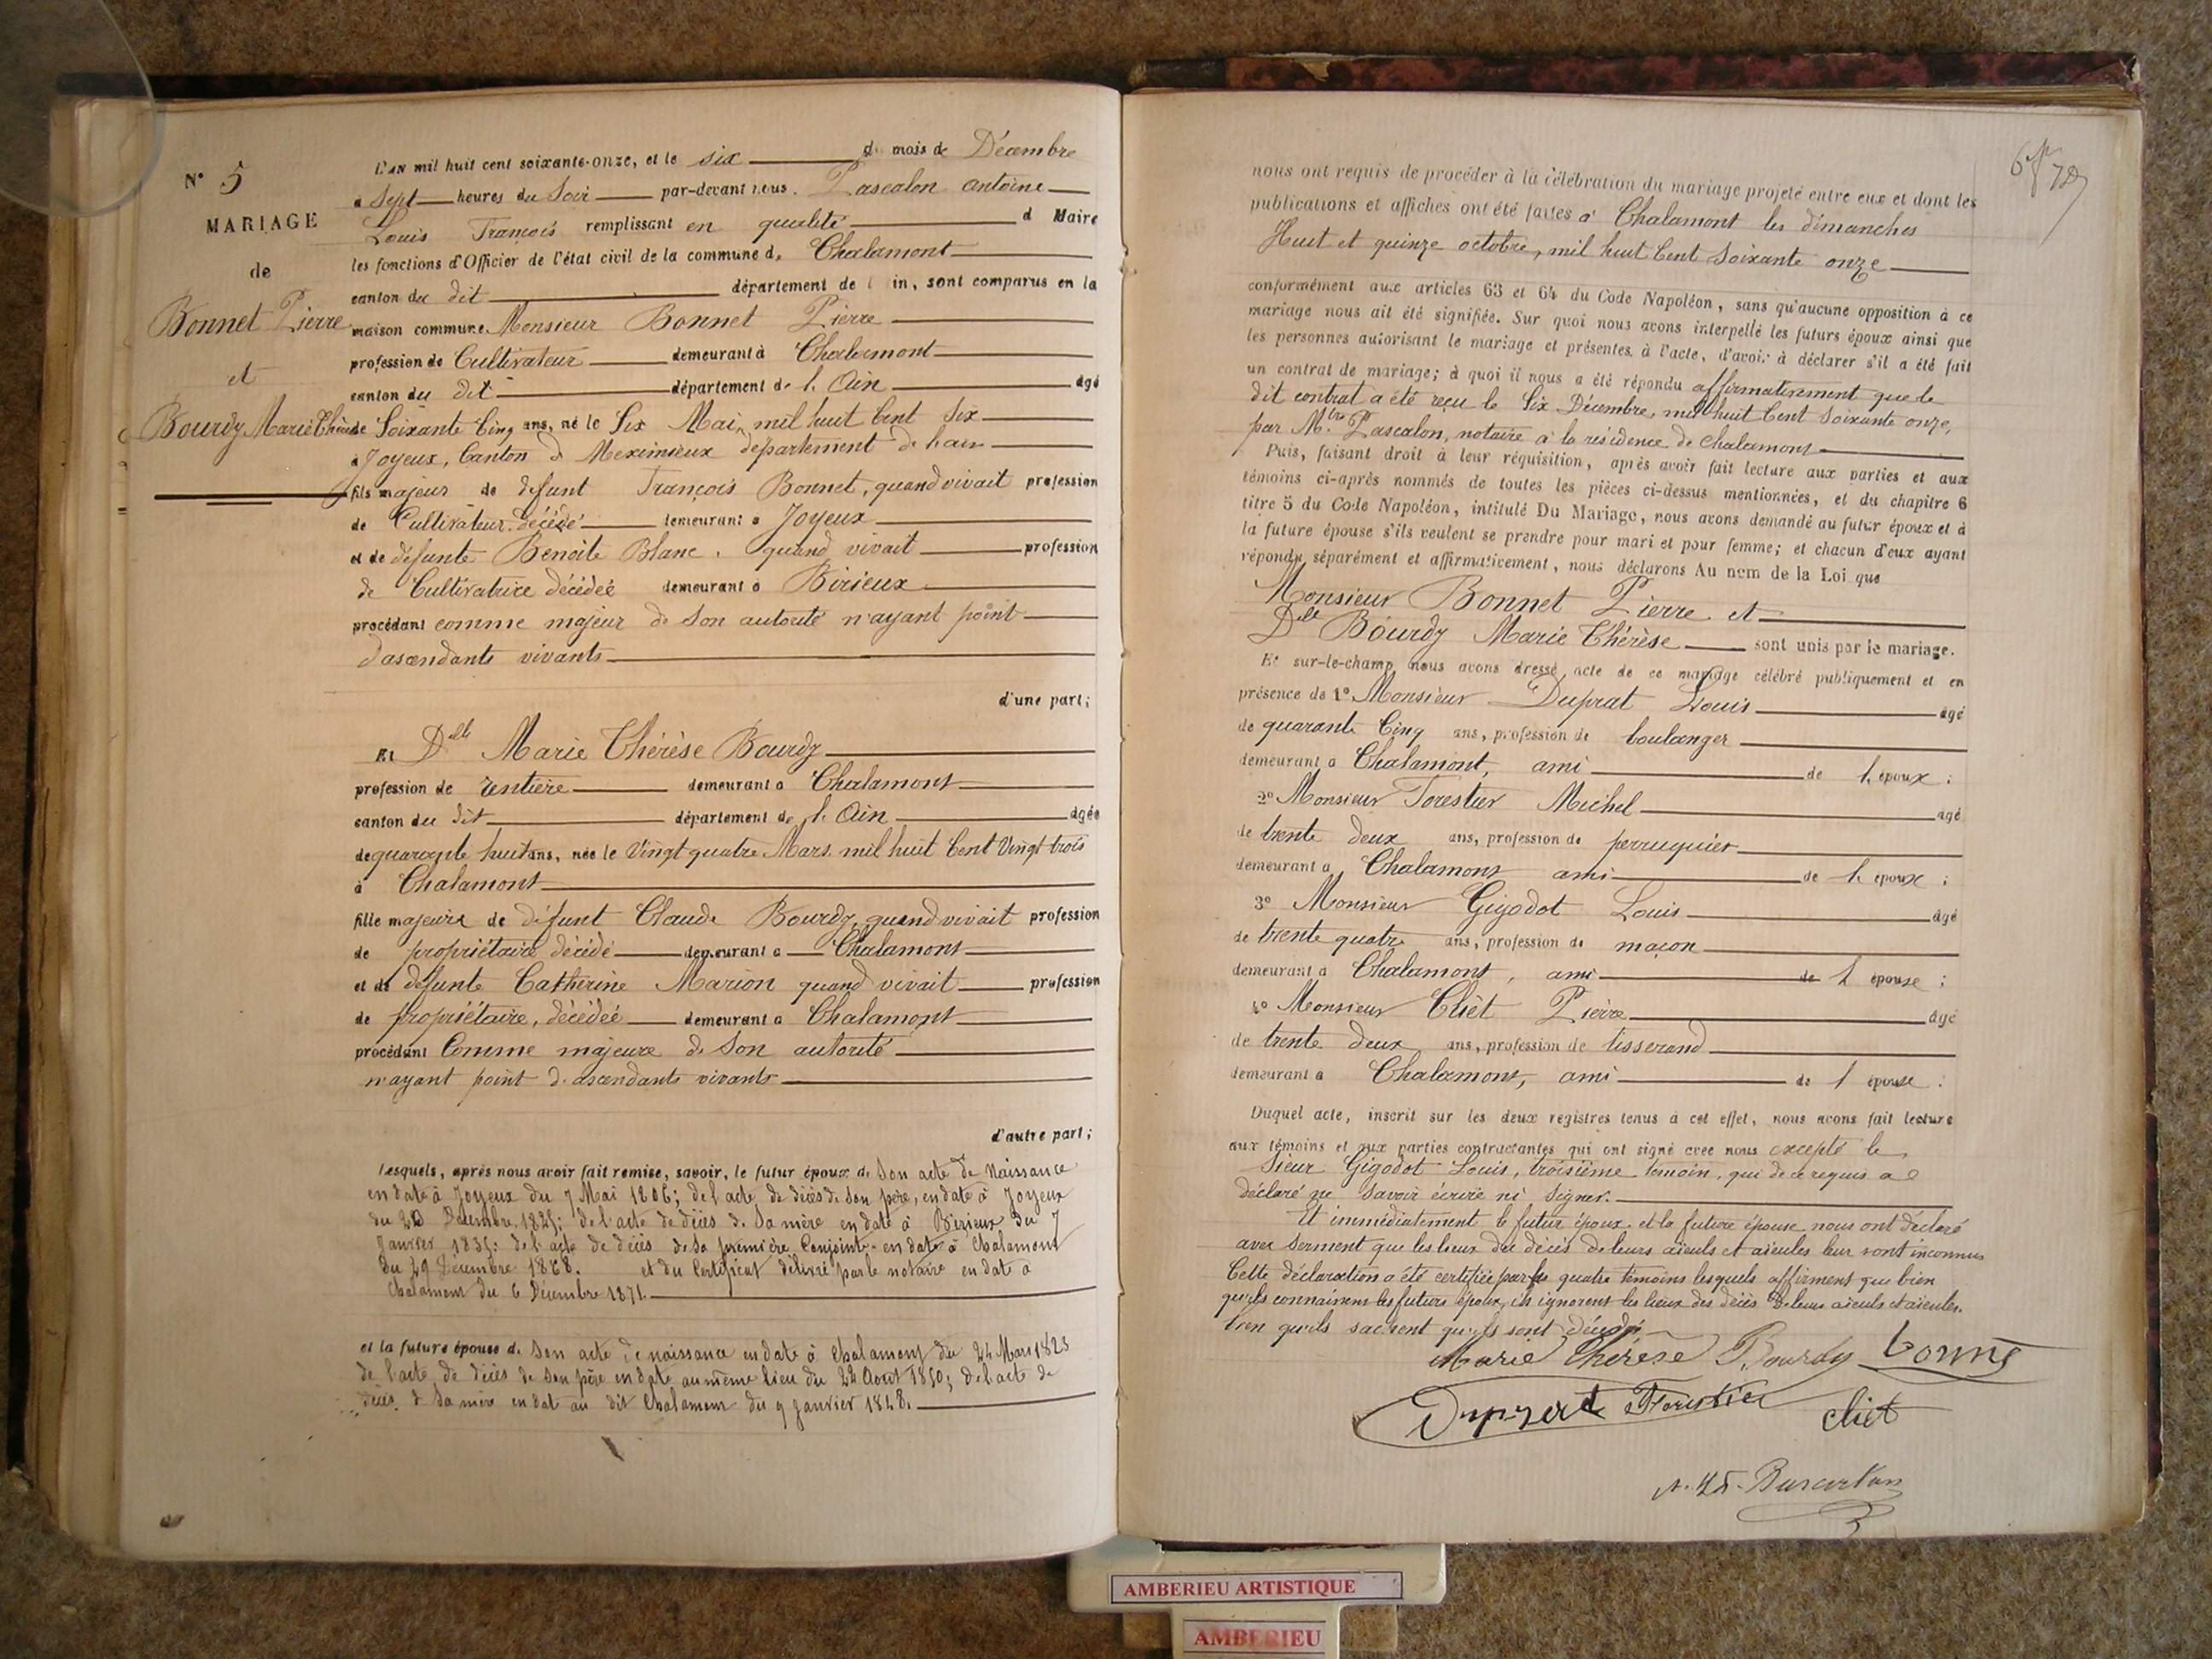 N° 5
MARIAGE
de
Bonnet Pierre
et
Bourdy Marie Thérèse
L'AN mil huit cent soixante-onze, et le six du mois de Décembre
à Sept heures du Soir par-devant nous. Pascalon antoine
Louis François remplissant en qualité d Maire
les fonctions d'Officier de l'état civil de la commune d. Chalamont
canton du dit département de l in, sont comparus en la
maison commune. Monsieur Bonnet Pierre
profession de Cultivateur demeurant à Chalamont
canton du dit département de l. Ain âgé
de Soixante Cinq ans, né le Six Mai, mil huit Cent Six
à Joyeux, Canton d Meximieux département de l'ain
fils majeur de defunt François Bonnet, quand vivait profession
de Cultivateur décédé demeurant à Joyeux
et de défunte Benoite Blanc. quand vivait profession
de Cultivatrice décédée demeurant à Birieux
procédant comme majeur de Son autorité n'ayant point
d'ascendants vivants
d'une part;
Et Dlle Marie Thérèse Bourdy
profession de rentière demeurant à Chalamont
canton du dit département de l. Ain âgée
de quarante huit ans, née le Vingt quatre Mars mil huit Cent Vingt trois
à Chalamont
fille majeure de défunt Claude Bourdy, quand vivait profession
de propriétaire décédé demeurant à Chalamont
et de défunte Catherine Marion quand vivait profession
de propriétaire, décédée demeurant à Chalamont
procédant Comme majeure de Son autorité
n'ayant point d. ascendants vivants
d'autre part;
Lesquels, après nous avoir fait remise, savoir, le futur époux de Son acte de Naissance
en date à Joyeux du 7 Mai 1806; de l'acte de décès de Son père, en date à Joyeux
du Décembre, de l'acte de décès de Sa mère en date à Birieux du 7
Janvier de l'acte de décès de Sa première Conjointe en date à Chalamont
du 29 Décembre 1868. et du Certificat délivré par le notaire en date à
Chalamont du 6 Décembre 1871.
et la future épouse de Son acte de naissance en date à Chalamont du 24 Mars 1823
de l'acte de décès de Son père en date au même lieu du 22 Août 1850; de l'acte de
décès de Sa mère en date au dit Chalamont du 9 Janvier
nous ont requis de procéder à la célébration du mariage projeté entre eux et dont les
publications et affiches ont été faites à Chalamont les dimanches
Huit et quinze octobre, mil huit Cent Soixante onze
conformément aux articles 63 et 64 du Code Napoléon, sans qu'aucune opposition à ce
mariage nous ait été signifiée. Sur quoi nous avons interpellé les futurs époux ainsi que
les personnes autorisant le mariage et présentes à l'acte, d'avoir à déclarer s'il a été fait
un contrat de mariage; à quoi il nous a été répondu affirmativement que le
dit contrat a été reçu le Six Décembre, mil huit Cent Soixante onze,
par Mtre Pascalon, notaire à la résidence de Chalamont
Puis, faisant droit à leur réquisition, après avoir fait lecture aux parties et aux
témoins ci-après nommés de toutes les pièces ci-dessus mentionnées, et du chapitre 6
titre 5 du Code Napoléon, intitulé Du Mariage, nous avons demandé au futur époux et à
la future épouse s'ils veulent se prendre pour mari et pour femme; et chacun d'eux ayant
répondu séparément et affirmativement, nous déclarons Au nom de la Loi que
Monsieur Bonnet Pierre et
Dlle Bourdy Marie Thérèse sont unis par le mariage.
Et sur-le-champ nous avons dressé acte de ce mariage célébré publiquement et en
présence de 1° Monsieur Duprat Louis âgé
de quarante Cinq ans, profession de boulanger
demeurant à Chalamont, ami de l. époux;
2° Monsieur Forestier Michel âgé
de trente deux ans, profession de perruquier
demeurant à Chalamont ami de l. époux;
3° Monsieur Gigodot Louis âgé
de trente quatre ans, profession de maçon
demeurant à Chalamont, ami de l épouse;
4° Monsieur Cliet Pierre âgé
de trente deux ans, profession de tisserand
demeurant à Chalamont, ami de l épouse:
Duquel acte, inscrit sur les deux registres tenus à cet effet, nous avons fait lecture
aux témoins et aux parties contractantes qui ont signé avec nous excepté le
Sieur Gigodot Louis, troisième témoin, qui de ce requis a
déclaré ne Savoir écrire ni Signer.
Et immédiatement le futur époux et la future épouse nous ont déclaré
avec Serment que les lieux du décès de leurs aïeuls et aïeules leur sont inconnus
Cette déclaration a été certifiée par les quatre témoins lesquels affirment que bien
qu'ils connaissent les futurs époux, ils ignorent les lieux des décès de leurs aïeuls et aïeules.
bien qu'ils sachent qu'ils sont décédés
Marie Thérèse Bourdy Bonne
Duprat Forestier cliet
AMBERIEU ARTISTIQUE
AMBERIEU